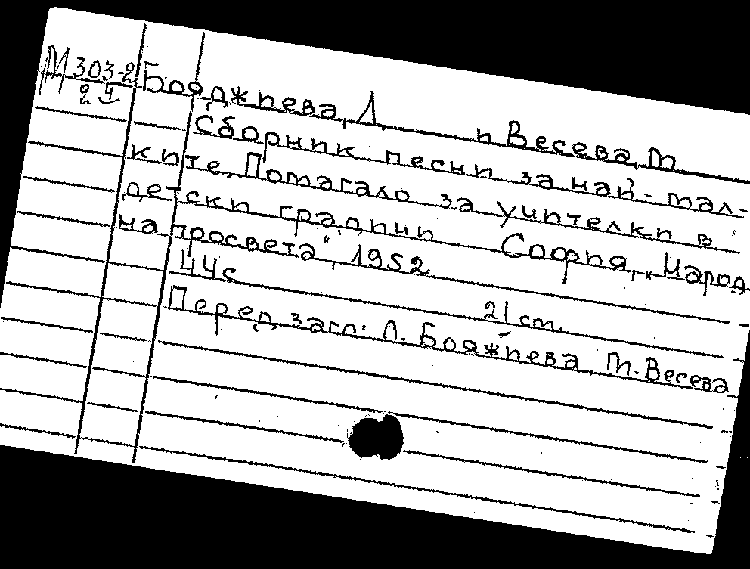 М 303-2 Бояджиева, Л. и Весева, М.
2
Сборник песни за най-мал-
ките. Помагало за учителки в
детски градини София, „Народ
на просвета", 1952
44 с. 21 см.
Перед загл: Л. Бояжиева, М. Весева